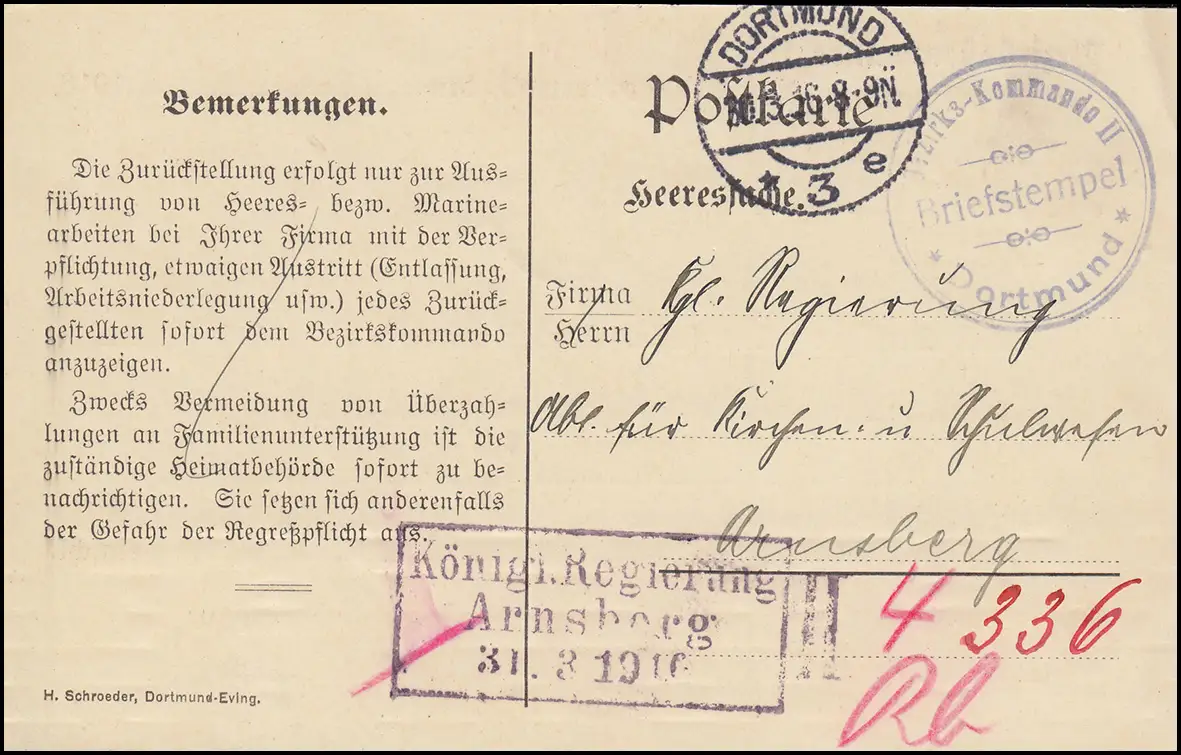 Bemerkungen.
Die Zurückstellung erfolgt nur zur Aus-
führung von Heeres- bezw. Marine-
arbeiten bei Ihrer Firma mit der Ver-
pflichtung, etwaigen Austritt (Entlassung,
Arbeitsniederlegung usw.) jedes Zurück-
gestellten sofort dem Bezirkskommando
anzuzeigen.
Zwecks Vermeidung von Überzah-
lungen an Familienunterstützung ist die
zuständige Heimatbehörde sofort zu be-
nachrichtigen. Sie setzen sich anderenfalls
der Gefahr der Regreßpflicht aus.
H. Schroeder, Dortmund-Eving.
Postkarte
Heeressache.
DORTMUND
8-9N
* 3 e
Bezirks-Kommando II
Briefstempel
* Dortmund *
Firma
Herrn
Kgl. Regierung
Abt. für Kirchen- u Schulwesen
Arnsberg
Königl. Regierung
Arnsberg
31. 3 1916
II
4 336